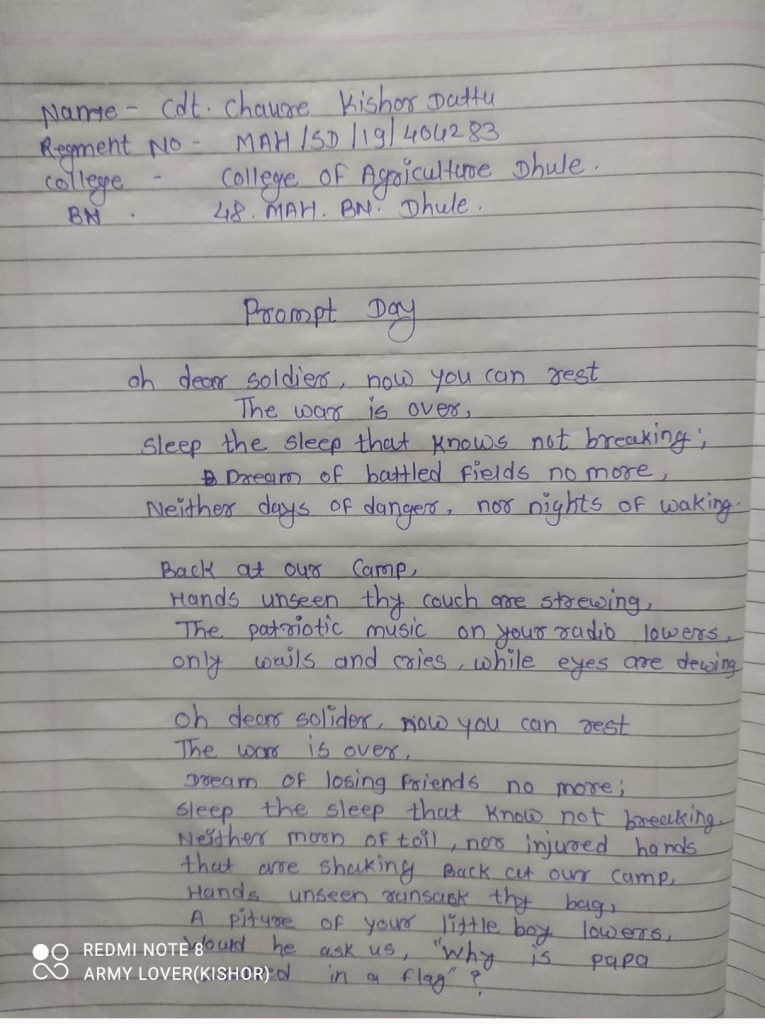 Name - Cdt. Chaure Kishor Dattu
Regment No - MAH/SD/19/404283
college - College of Agriculture Dhule.
BN . 48. MAH. BN. Dhule.
Prompt Day
oh dear soldier, now you can rest
The war is over,
sleep the sleep that knows not breaking;
Dream of battled fields no more,
Neither days of danger, nor nights of waking.
Back at our Camp,
Hands unseen thy couch are strewing,
The patriotic music on your radio lowers,
only wails and cries, while eyes are dewing
oh dear solider, now you can rest
The war is over,
Dream of losing friends no more;
sleep the sleep that know not breaking,
Neither morn of toil, nor injured hands
that are shaking Back at our camp,
Hands unseen ransack thy bag,
A piture of your little boy lowers,
Would he ask us, "Why is papa
in a flag"?
REDMI NOTE 8
ARMY LOVER(KISHOR)